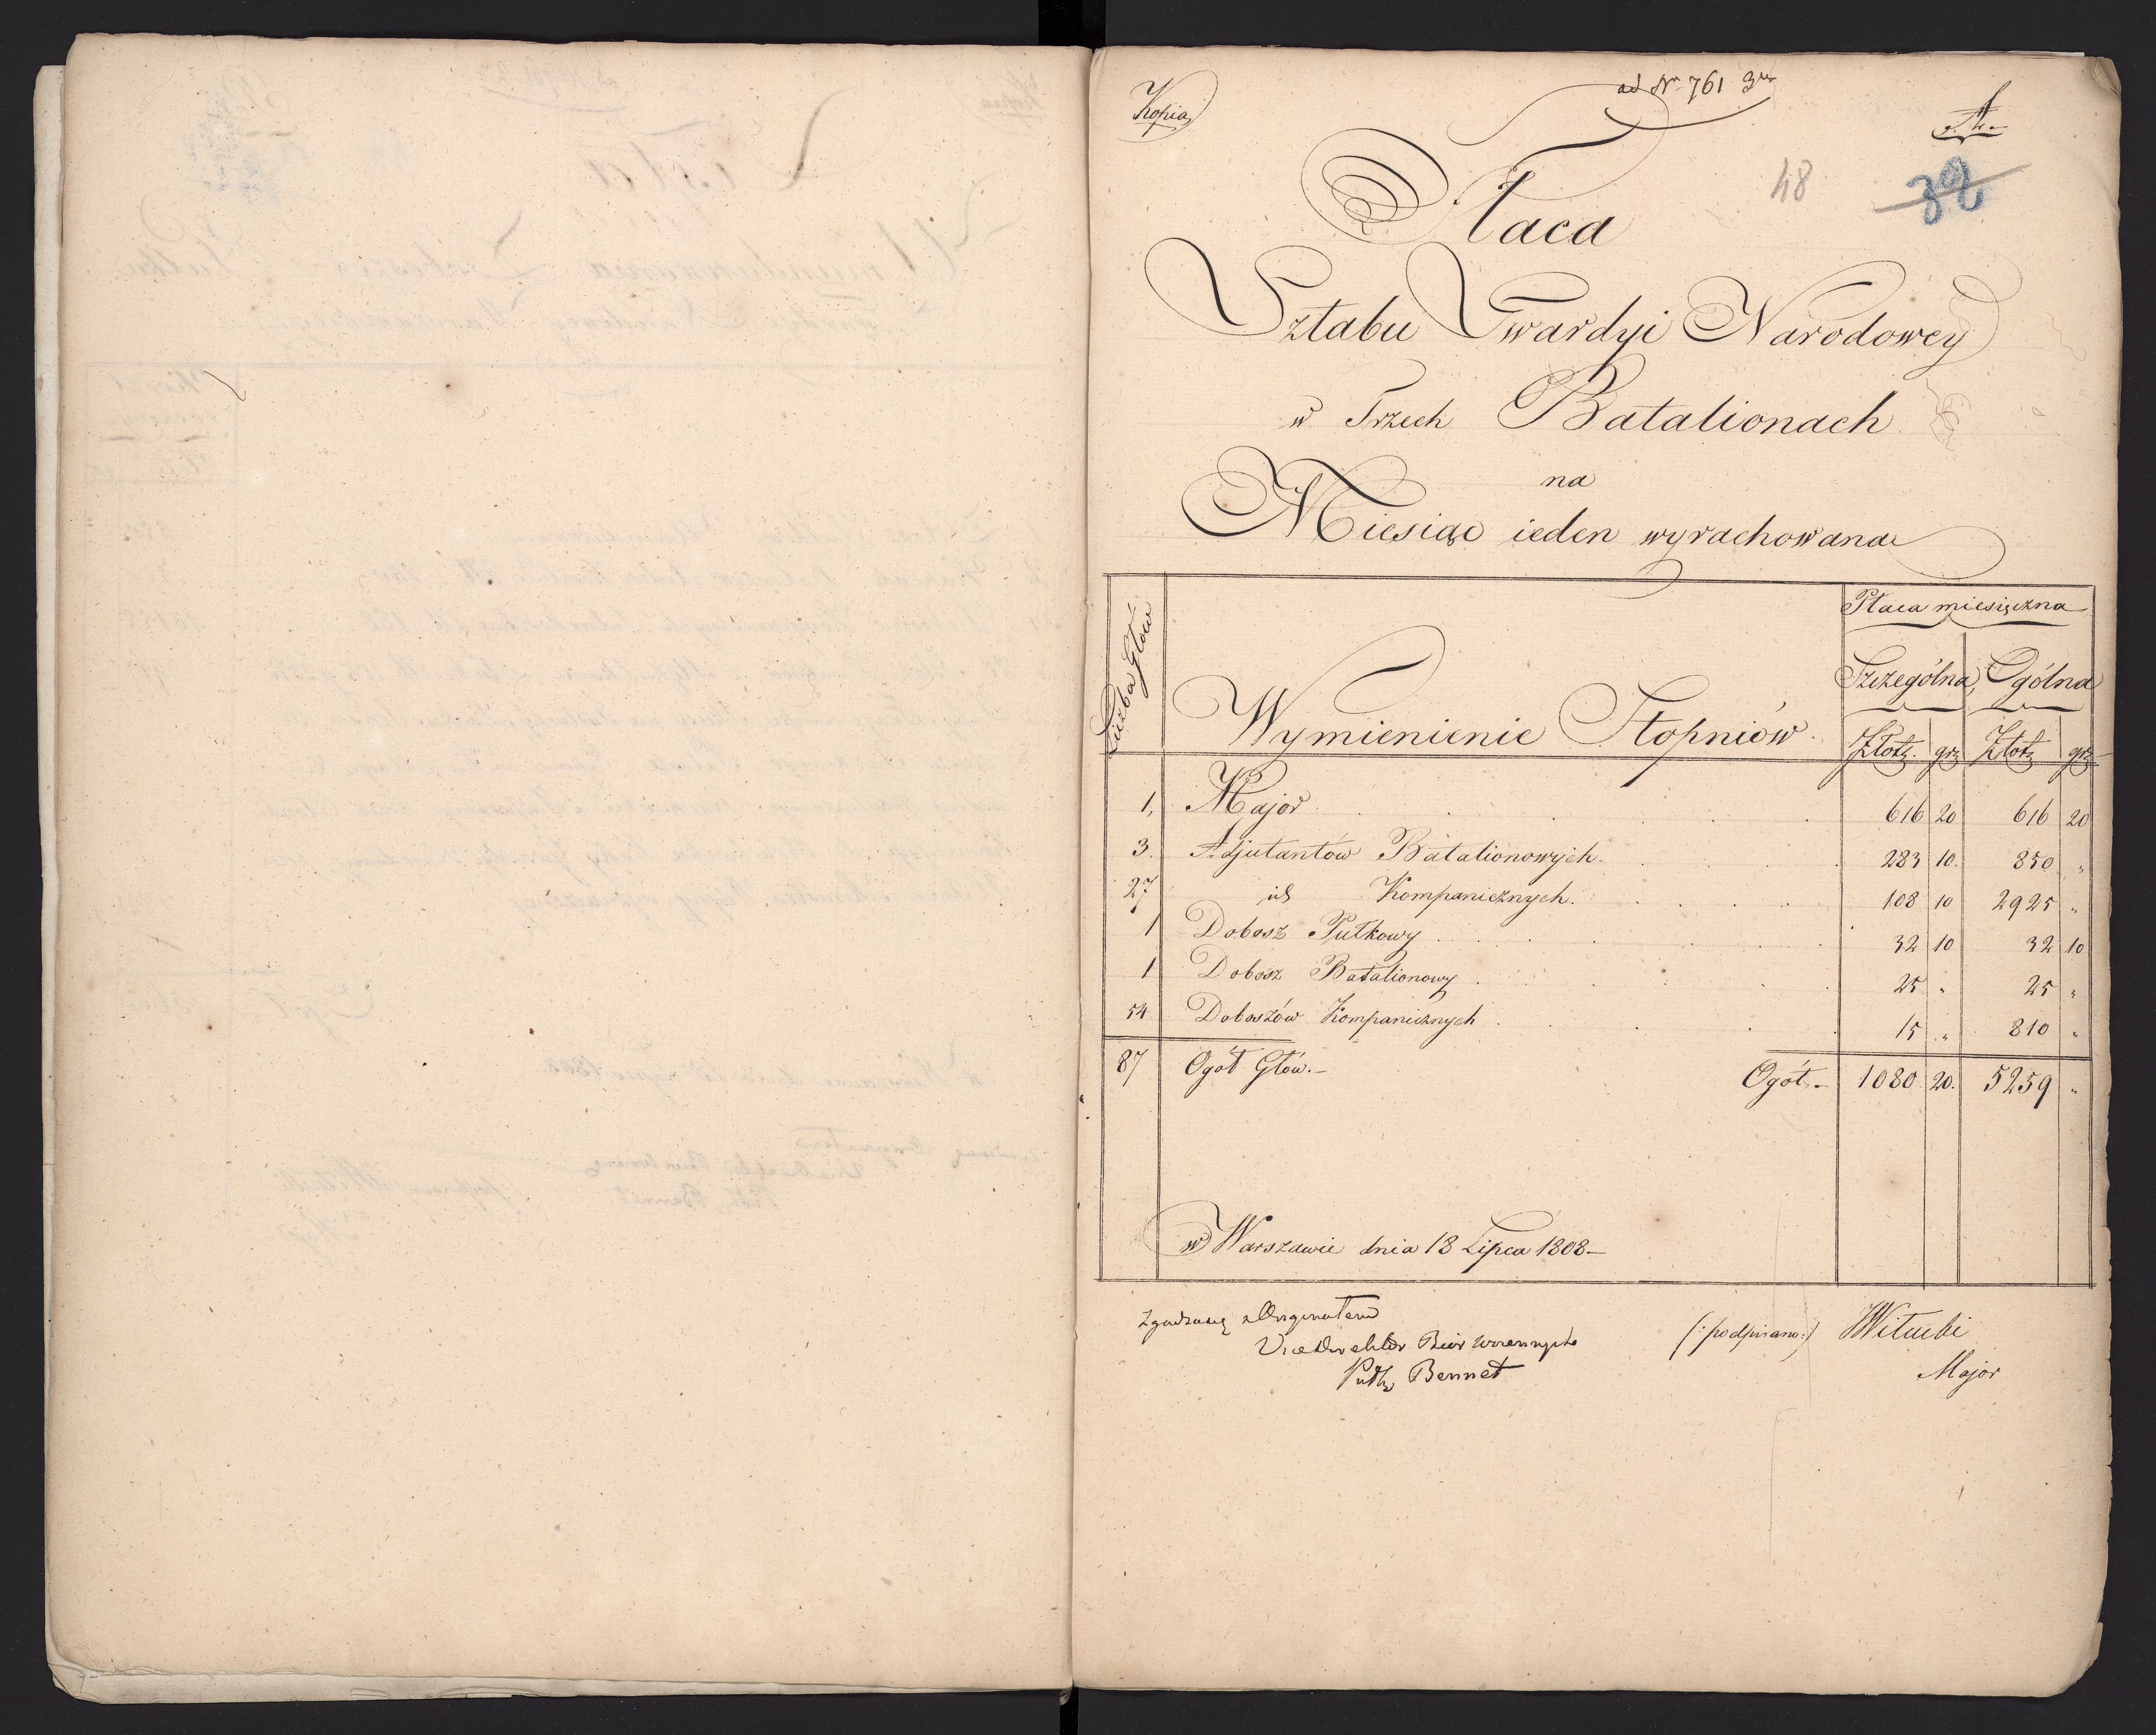 Kopia
ad Nr 761 3
A.
48
32
Płaca
Sztabu Gwardyi Narodowey
w Trzech Batalionach
na
Miesiąc ieden wyrachowana
Liczba Głow
Wymienienie Stopniów
Płaca miesięczna
Szczególna Ogólna
Złotz. grz Złotz grz
1, Major 616 20 616 20
3. Adjutantów Batalionowych. 283 10. 850 "
27 id Kompanicznych. 108 10 2925 "
1 Dobosz Pułkowy 32 10 32 10
1 Dobosz Batalionowy 25 " 25 "
54 Doboszów Kompanicznych 15 " 810 "
87 Ogół Głów.- Ogół.- 1080 20. 5259 "
w Warszawie dnia 18 Lipca 1808-
Zgadza się z Oryginałem
Vice Direktor Biór Woiennych
Pułk Bennet
(:podpisano:) Witucki
Major